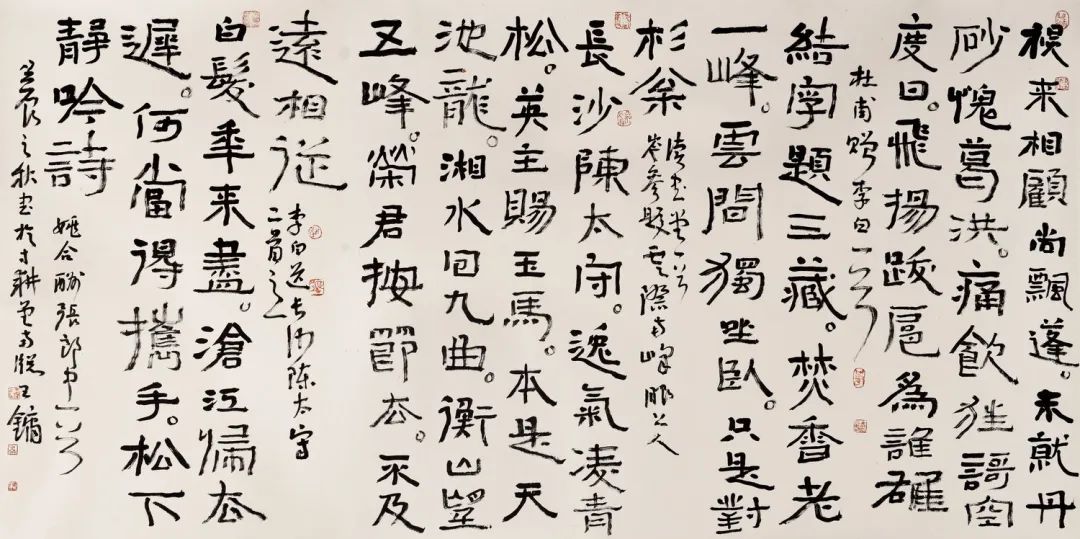 秋来相顧尚飄蓬。未就丹
砂愧葛洪。痛飲狂謌空
度日。飛揚跋扈為誰雄
杜甫贈李白一首
結宇題三藏。焚香老
一峰。雲間獨坐卧。只是對
杉枀
岑參題雲際南峰眼上人
讀書堂一首
長沙陳太守。逸氣凌青
松。英主賜玉馬。本是天
池龍。湘水回九曲。衡山望
五峰。榮君按節去。不及
遠相從
李白送長沙陳太守
二首之一
白髮年来盡。滄江歸去
遲。何當得攜手。松下
靜吟詩
姚合酬張郎中一首
之秋書於寸耕堂南牕王鏞